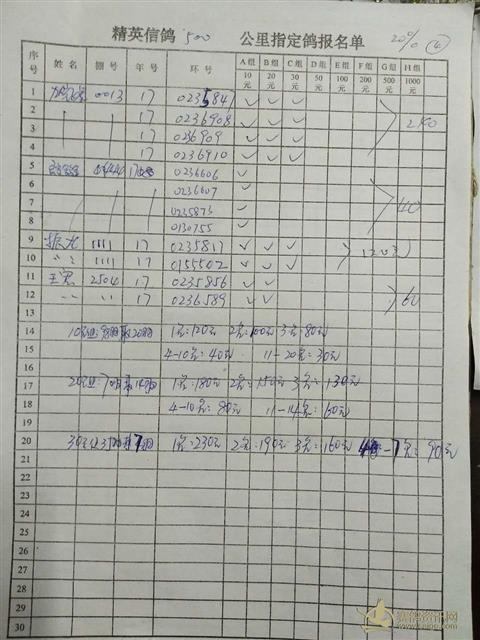 精英信鸽 500 公里指定鸽报名单 20% ④
序号 姓名 棚号 年号 环号 A组 10元 B组 20元 C组 30元 D组 50元 E组 100元 F组 200元 G组 500元 H组 1000元
1 0013 17 0235847 ✓ ✓ ✓
2 17 0236908 ✓ ✓ ✓ 240
3 17 0236909 ✓ ✓ ✓
4 17 0236910 ✓ ✓ ✓
5 17 0236606 ✓
6 0236607 ✓
7 0235873 ✓ 40
8 0130755 ✓
9 振龙 1111 17 0235817 ✓ ✓ ✓ 120元
10 〃 〃 1111 17 0155502 ✓ ✓ ✓
11 王军 2504 17 0235856 ✓ ✓
12 〃 〃 17 0236589 ✓ ✓ 60
13
14 1名:120元 2名:100元 3名:80元
15 4-10名:40元 11-20名:30元
16
17 1名:180元 2名:150元 3名:130元
18 4-10名:80元 11-14名:60元
19
20 1名:230元 2名:190元 3名:160元 4-7名:90元
21
22
23
24
25
26
27
28
29
30